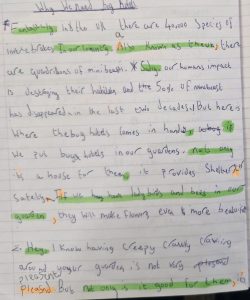 Why We need bug hotels
* Fcurently, in the UK there are 40000 Species of
inverterbrates in our country. Also known as these, there
are quadrillions of minibeasts. * Sadly our humans impact
is destroying their habitats and the 50% of minibeast
has disappeared in the last two decades. But here is
Where the bug hotels comes in handy,
we put bug hotels in our guardens. not only
is a house for them, it provides Shelter for
Safety. If we buy have ladybirds and bees in our
guarden, they will make flowers even more beautiful
2. Hey, I know having creepy crawly crawling
around your guarden is not very pleasent
pleasent But not only is it good for them,